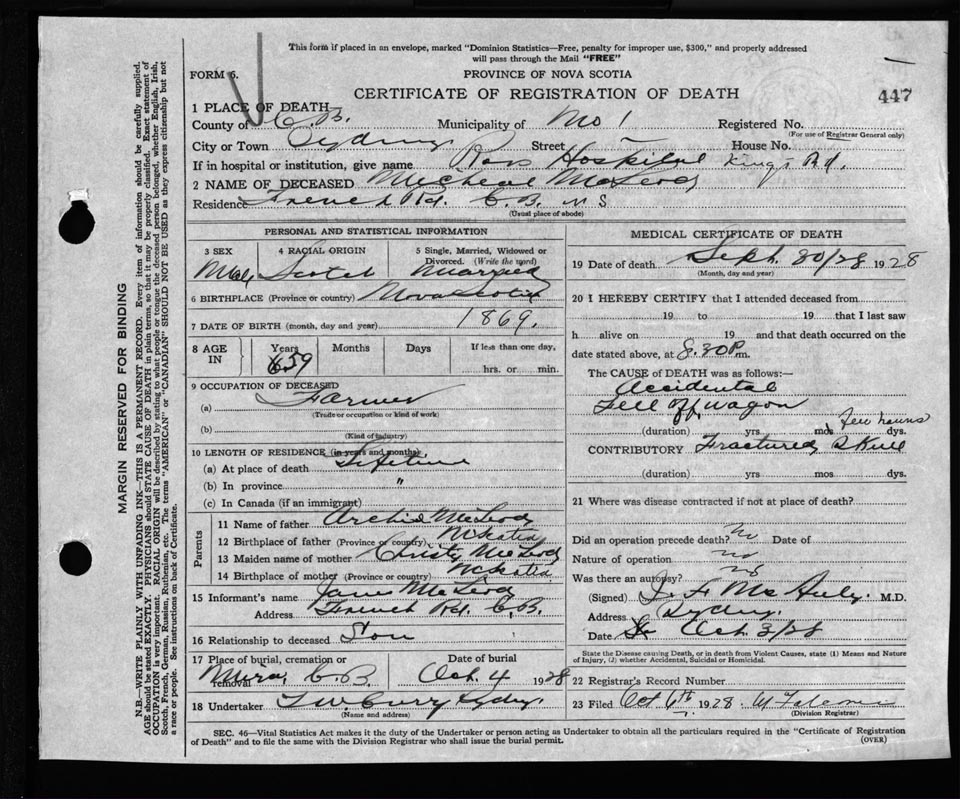 This form if placed in an envelope, marked "Dominion Statistics—Free, penalty for improper use, $300," and properly addressed
will pass through the Mail "FREE"
FORM 6.
PROVINCE OF NOVA SCOTIA
CERTIFICATE OF REGISTRATION OF DEATH
447
1 PLACE OF DEATH
County of C.B. Municipality of No 1 Registered No.
(For use of Registrar General only)
City or Town Sydney Street House No.
If in hospital or institution, give name Ross Hospital Kings Rd.
2 NAME OF DECEASED Micheal McLeod
Residence French Rd. C.B. N S
(Usual place of abode)
PERSONAL AND STATISTICAL INFORMATION
3 SEX 4 RACIAL ORIGIN 5 Single, Married, Widowed or Divorced. (Write the word)
Male Scotch Married
6 BIRTHPLACE (Province or country) Nova Scotia
7 DATE OF BIRTH (month, day and year) 1869.
8 AGE IN Years Months Days If less than one day,
59 hrs. or min.
9 OCCUPATION OF DECEASED
(a) Farmer
(Trade or occupation or kind of work)
(b)
(Kind of industry)
10 LENGTH OF RESIDENCE (in years and months)
(a) At place of death Lifetime
(b) In province "
(c) In Canada (if an immigrant)
Parents
11 Name of father Archie McLeod
12 Birthplace of father (Province or country)
13 Maiden name of mother Christy McLeod
14 Birthplace of mother (Province or country)
15 Informant's name McLeod
Address French Rd. C.B.
16 Relationship to deceased Son
17 Place of burial, cremation or removal Date of burial
Mira, C.B. Oct. 4 1928
18 Undertaker Curry Sydney
(Name and address)
MEDICAL CERTIFICATE OF DEATH
19 Date of death Sept. 30/28 1928
(Month, day and year)
20 I HEREBY CERTIFY that I attended deceased from
19 to 19 that I last saw
h alive on 19 and that death occurred on
date stated above, at 8.30 P.m.
The CAUSE of DEATH was as follows:—
Accidental
Fell off wagon
few hours
(duration) yrs mos dys.
CONTRIBUTORY Fractured Skull
(duration) yrs mos dys.
21 Where was disease contracted if not at place of death?
Did an operation precede death? No Date of
Nature of operation no
Was there an autopsy? no
(Signed) M.D.
Address Sydney.
Date Oct. 3/28
State the Disease causing Death, or in death from Violent Causes, state (1) Means and Nature
of Injury, (2) whether Accidental, Suicidal or Homicidal.
22 Registrar's Record Number
23 Filed Oct 6th 1928
(Division Registrar)
SEC. 46—Vital Statistics Act makes it the duty of the Undertaker or person acting as Undertaker to obtain all the particulars required in the "Certificate of Registration
of Death" and to file the same with the Division Registrar who shall issue the burial permit.
(OVER)
MARGIN RESERVED FOR BINDING
N.B.—WRITE PLAINLY WITH UNFADING INK—THIS IS A PERMANENT RECORD. Every item of information should be carefully supplied.
AGE should be stated EXACTLY. PHYSICIANS should STATE CAUSE OF DEATH in plain terms, so that it may be properly classified. Exact statement of
OCCUPATION is very important. RACIAL ORIGIN will be described by stating to what people or tongue the deceased person belonged, whether English, Irish,
Scotch, French, German, Russian, Ruthenian, etc. The terms "AMERICAN" or "CANADIAN" SHOULD NOT BE USED as they express citizenship but not
a race or people. See instructions on back of Certificate.